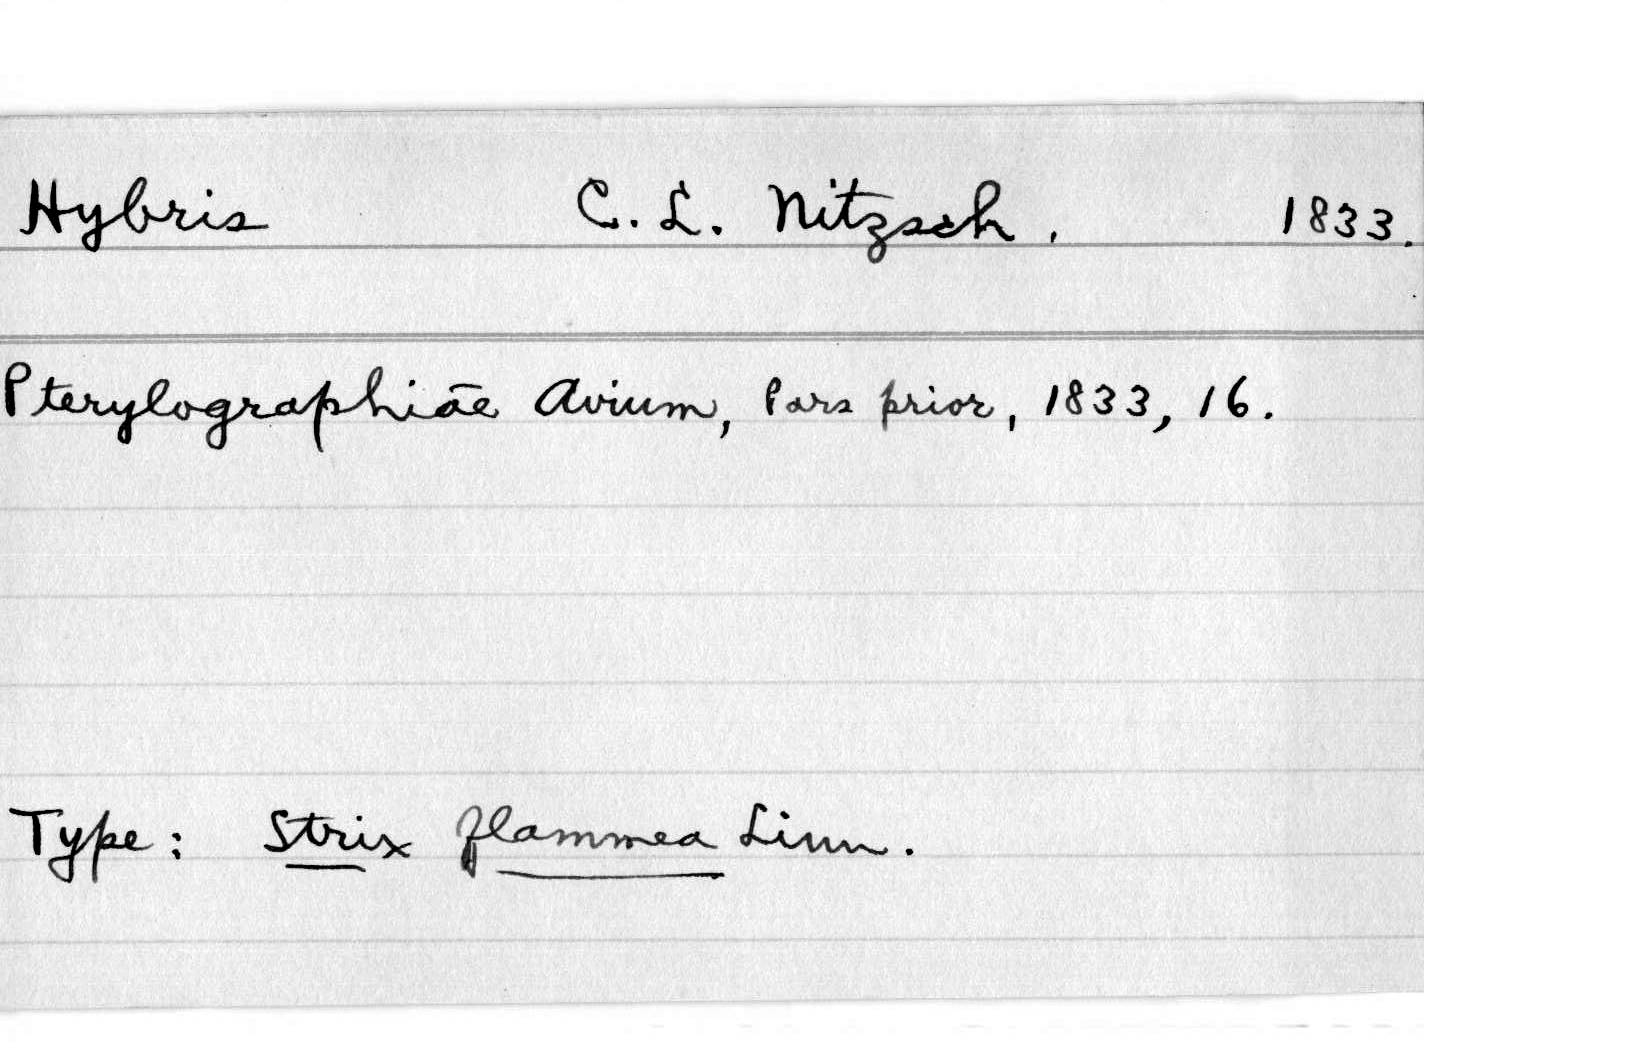 Hybris C. L. Nitzsch. 1833.
Pterylographiae Avium, Pars prior, 1833, 16.
Type: Strix flammea Linn.